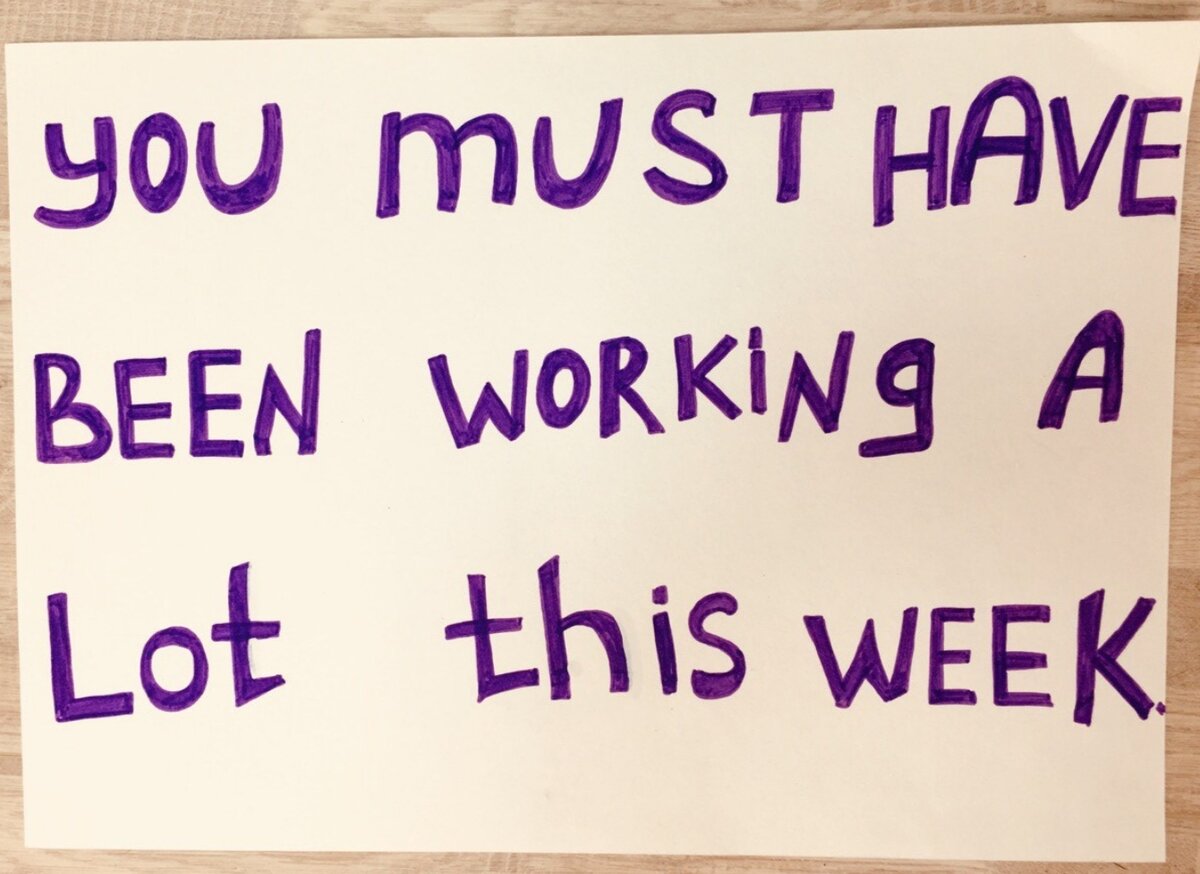 YOU MUST HAVE
BEEN WORKiNg A
Lot this WEEK.